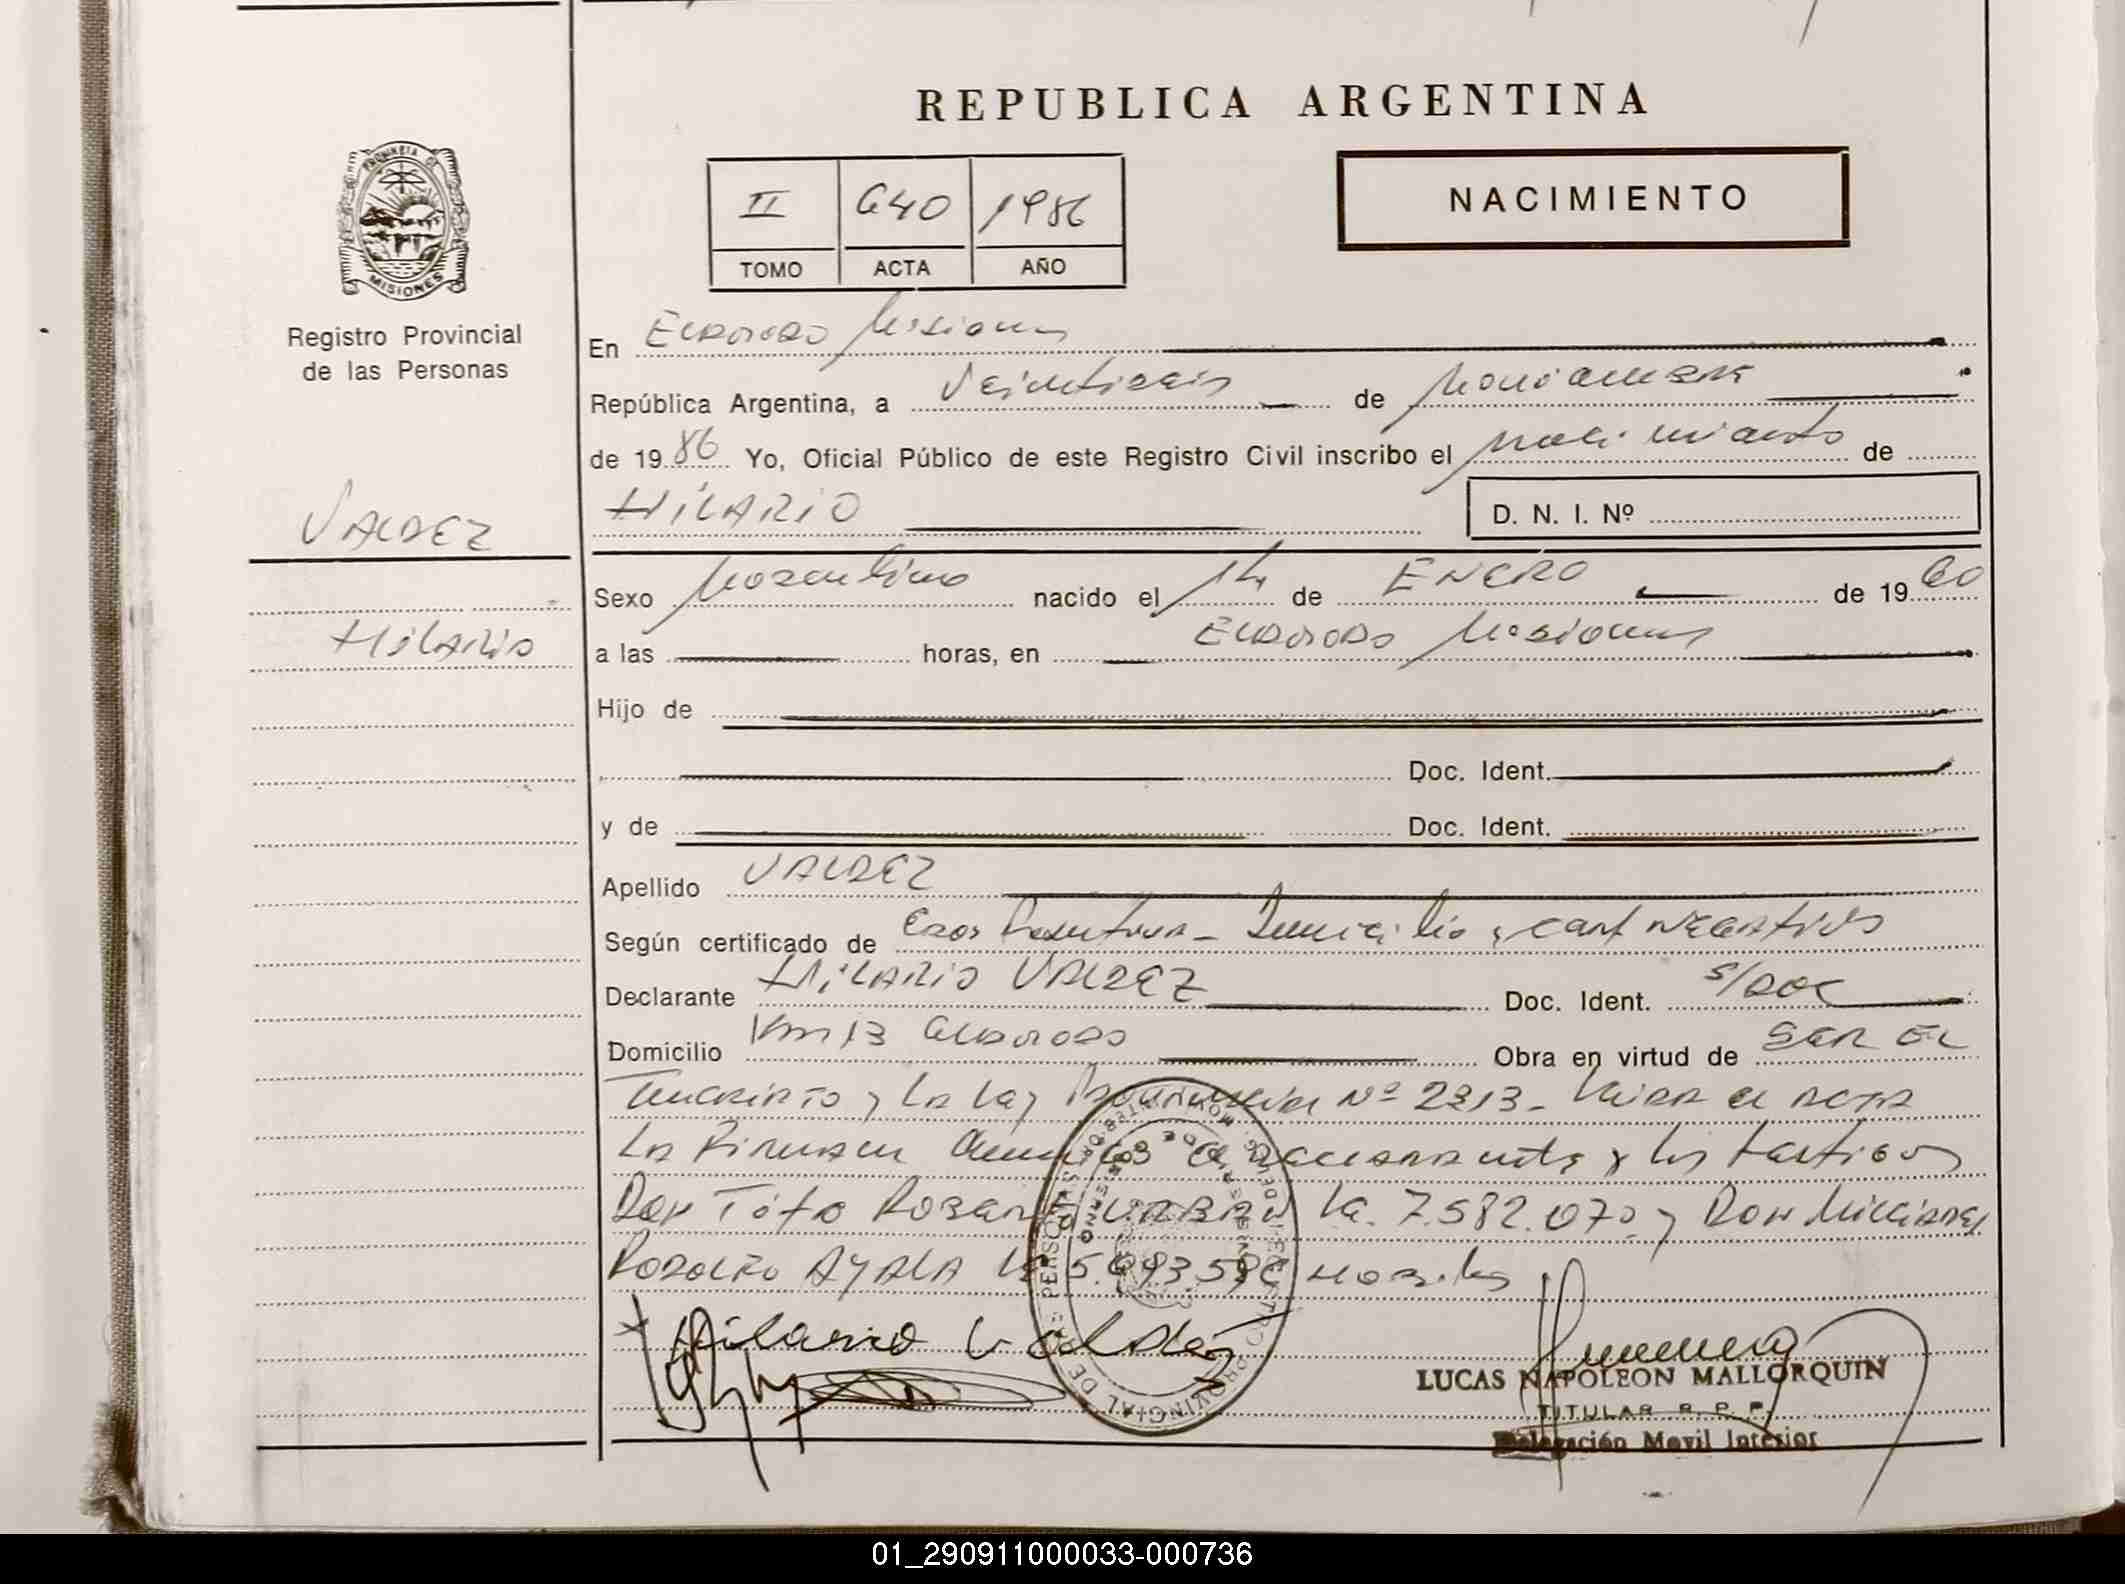 REPUBLICA ARGENTINA
II 640 1986
TOMO ACTA AÑO
NACIMIENTO
PROVINCIA DE
MISIONES
Registro Provincial
de las Personas
VALDEZ
HilARio
En ELDORADO Misiones
República Argentina, a Veintiseis de Noviembre
de 1986 Yo, Oficial Público de este Registro Civil inscribo el nacimiento de
HilARIO D. N. I. Nº
Sexo Masculino nacido el 14 de ENERO de 1960
a las horas, en ELDORADO Misiones
Hijo de
Doc. Ident.
y de Doc. Ident.
Apellido VALDEZ
Según certificado de Domicilio y NEGATIVOS
Declarante HiLARIO VALDEZ Doc. Ident. S/DOC
Domicilio Km 13 ELDORADO Obra en virtud de SER EL
INSCRIPTO y LA Ley PROVINCIAL Nº 2213- LEIDA EL ACTA
LA FIRMAN el DECLARANTE y los testigos
Don Tito 7.582.070 y DON
RODOLFO AYALA HABILES
Hilario Valdez
LUCAS NAPOLEON MALLORQUIN
TITULAR R. P. P.
Delegación Movil Interior
01_290911000033-000736